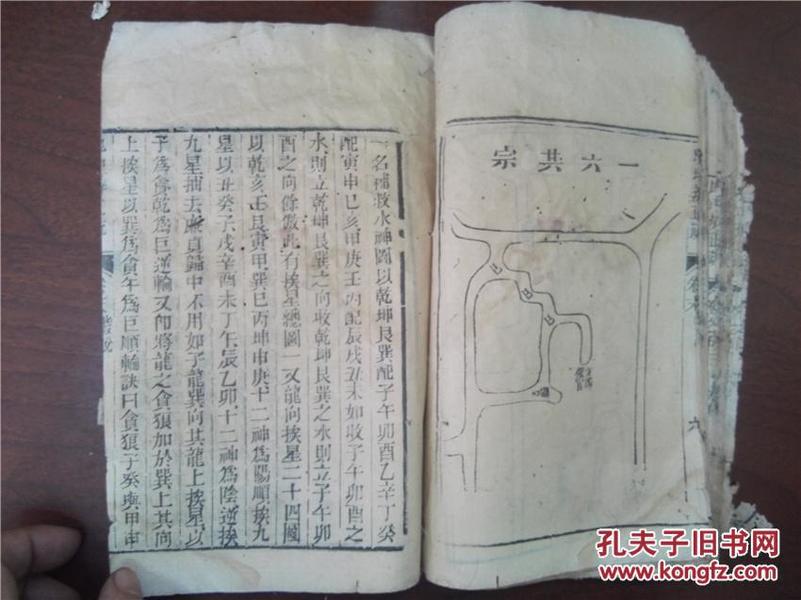 宗共六一
一名補救水神圖以乾坤艮巽配子午卯酉乙辛丁癸
配寅申巳亥甲庚壬丙配辰戌丑未如收子午卯酉之
水則立乾坤艮巽之向收乾坤艮巽之水則立子午卯
酉之向餘倣此有挨星總圖一又龍向挨星二十四圖
以乾亥壬艮寅甲巽巳丙坤申庚十二神為陽順挨九
星以丑癸子戌辛酉未丁午辰乙卯十二神為陰逆挨
九星抽去廉貞歸中不用如子龍巽向其龍上挨星以
子為貪乾為巨逆輪又卽將龍之貪狼加於巽上其向
上挨星以巽為貪午為巨順輪訣曰貪狼子癸與甲申
孔夫子旧书网
www.kongfz.com